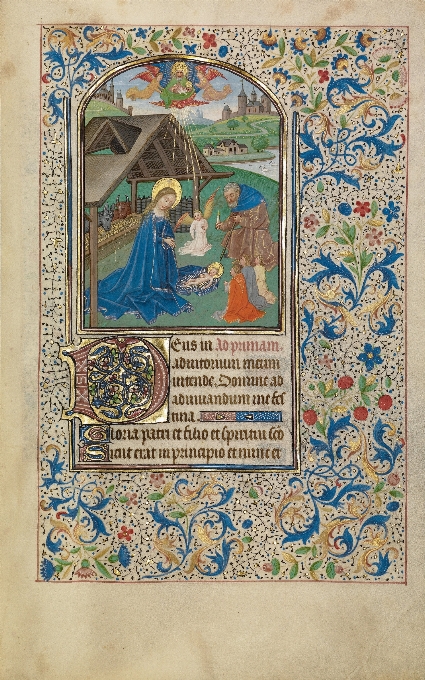 Deus in Ad primam.
adiutorium meum
intende. Domine ad
adiuuandum me fes
tina.
Gloria patri et filio et spiritui sco
Sicut erat in principio et nunc et